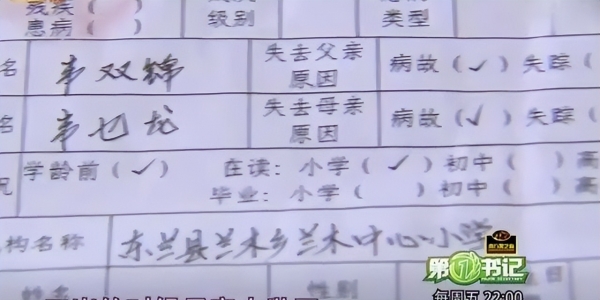 残疾( )
患病( )
级别
类型
名 韦双锦 失去父亲原因 病故(√) 失踪(
名 韦乜龙 失去母亲原因 病故(√) 失踪(
况 学龄前(√) 在读: 小学(√) 初中( ) 高
毕业: 小学( ) 初中( ) 高
机构名称 东兰县兰木乡兰木中心小学
第1书记
每周五22:00
姓名 性别